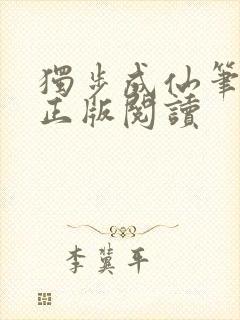 獨步成仙筆
正版閱讀
李冀平